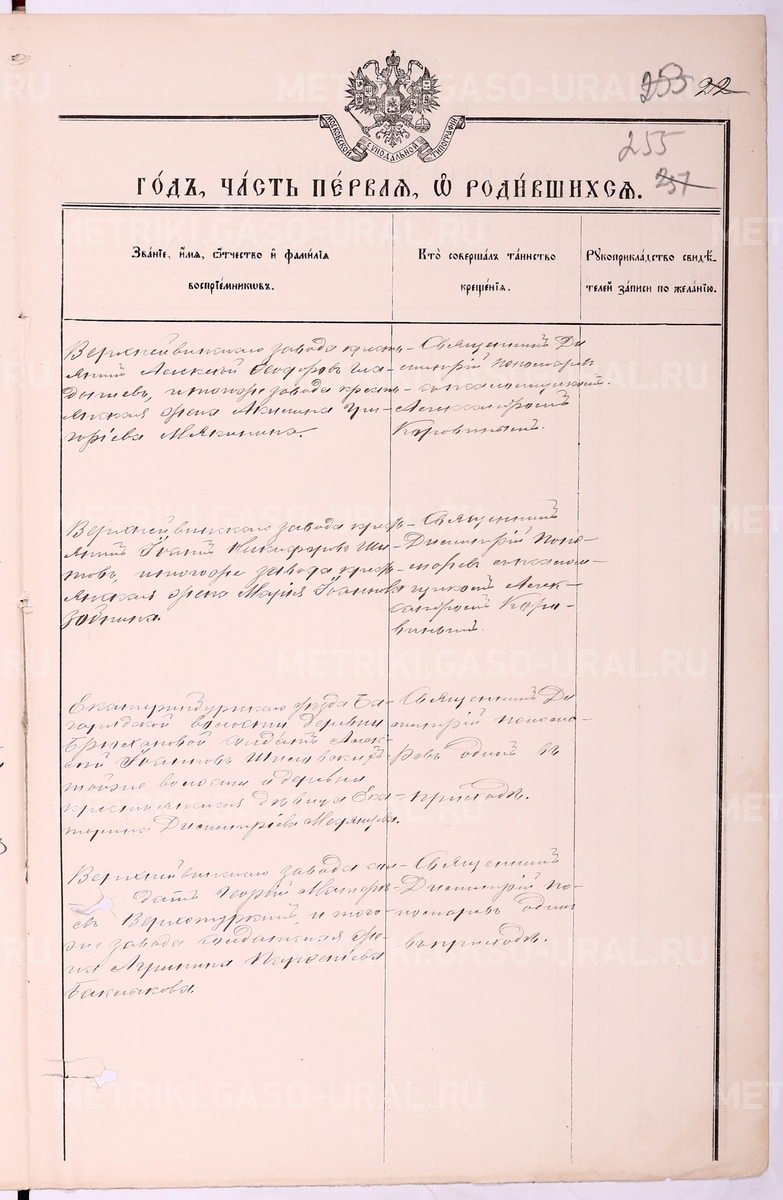 253 22
МОСКОВСКОЙ СУНОДАЛЬНОЙ ТИПОГРАФІИ
255
ГО́ДЪ, ЧА́СТЬ ПЕ́РВАѦ, Ѽ РОДИ́ВШИХСѦ. 257
Зва́нїе, и́мѧ, ѻ҆́тчество и҆ фами́лїѧ
воспрїе́мникѡвъ.
Кто̀ соверша́лъ та́инство
креще́нїѧ.
Рꙋкоприкла́дство свидѣ́-
телей за́писи по жела́нїю.
Верхнейвинскаго завода кресть-
янинъ Алексѣй Ѳеодоровъ
дычевъ, и тогоже завода кресть-
янская жена Акилина Гри-
горіева Мякинина.
Священникъ Ди-
митрій Пономаревъ
съ псаломщикомъ
Александромъ
Коровинымъ.
Верхнейвинскаго завода крест-
янинъ Іоаннъ Никифоровъ Ши-
товъ, и тогоже завода крест-
янская жена Марія Іоаннова
Зобнина.
Священникъ
Димитрій Поно-
маревъ съ псалом-
щикомъ Алек-
сандромъ Коро-
винымъ.
Екатеринбургскаго уѣзда Ба-
гарядской волости деревни
солдатъ Алек-
сѣй Іоанновъ
тойже волости и деревни
крестьянская дѣвица Ека-
терина Димитріева
Священникъ Ди-
митрій Понома-
ревъ одинъ въ
приходѣ.
Верхнейвинскаго завода сол-
датъ Георгій
евъ Верхотурскій, и того-
же завода солдатская же-
на Агрипина
Баклыкова.
Священникъ
Димитрій По-
номаревъ одинъ
въ приходѣ.
METRIKI.GASO-URAL.RU